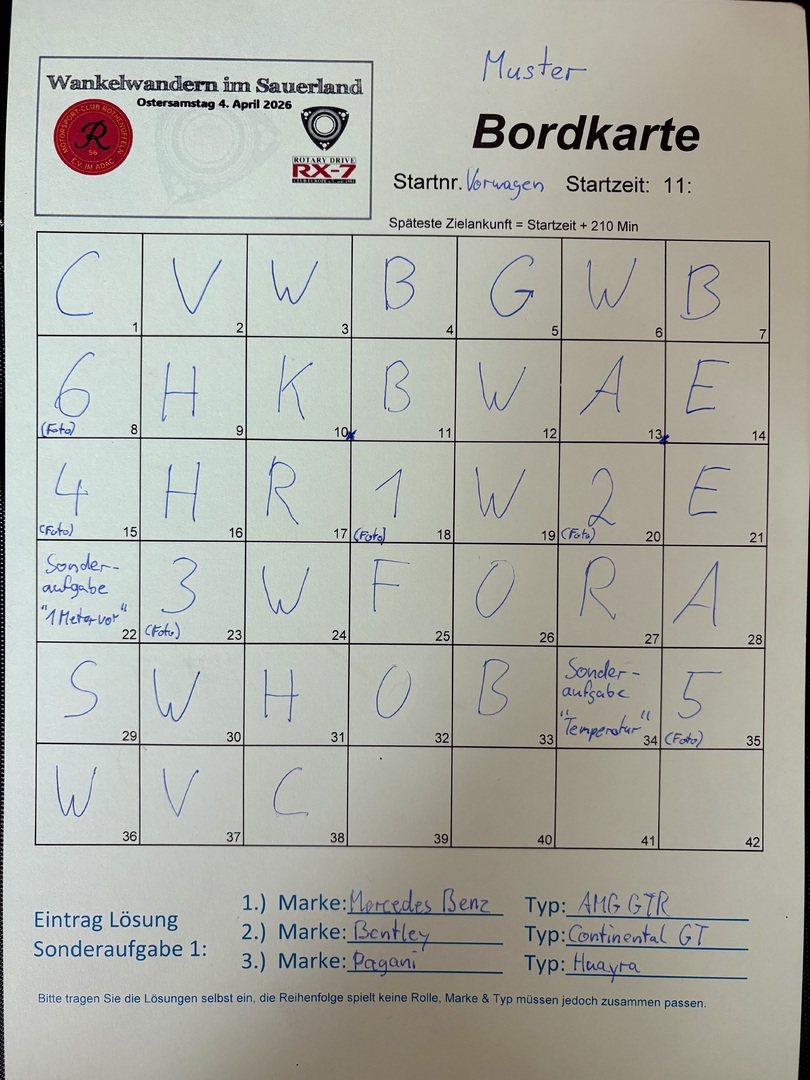 Muster
Wankelwandern im Sauerland
Ostersamstag 4. April 2026
MOTORSPORT-CLUB ROTHENUFFELN
R
56
E.V. IM ADAC
ROTARY DRIVE
RX-7
Bordkarte
Startnr. Vorwagen Startzeit: 11:
Späteste Zielankunft = Startzeit + 210 Min
C V W B G W B
1 2 3 4 5 6 7
6 H K B W A E
(Foto) 8 9 10 11 12 13 14
4 H R 1 W 2 E
(Foto) 15 16 17 (Foto) 18 19 (Foto) 20 21
Sonder-
aufgabe
"1 Meter vor" 22
3 W F O R A
(Foto) 23 24 25 26 27 28
S W H O B
29 30 31 32 33
Sonder-
aufgabe
"Temperatur" 34
5
(Foto) 35
W V C
36 37 38 39 40 41 42
Eintrag Lösung
Sonderaufgabe 1:
1.) Marke: Mercedes Benz Typ: AMG GTR
2.) Marke: Bentley Typ: Continental GT
3.) Marke: Pagani Typ: Huayra
Bitte tragen Sie die Lösungen selbst ein, die Reihenfolge spielt keine Rolle, Marke & Typ müssen jedoch zusammen passen.